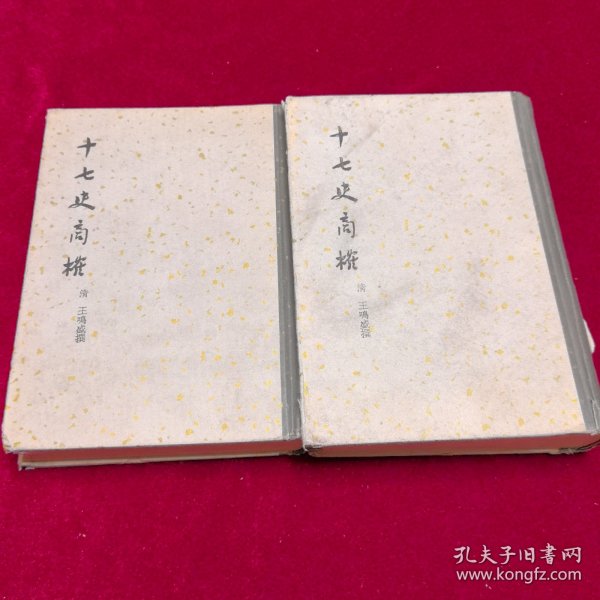 十七史商榷
清 王鳴盛撰
十七史商榷
清 王鳴盛撰
孔夫子旧书网
www.kongfz.com